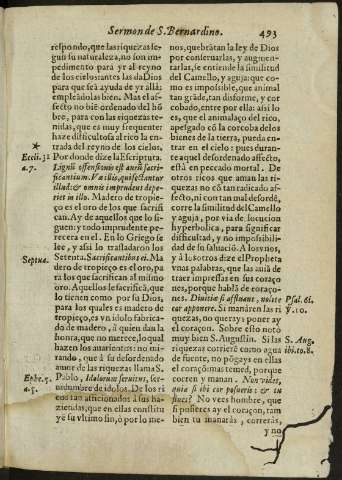 Sermon de S. Bernardino. 493
respondo, que las riquezas se-
gun su naturaleza, no son im-
pedimento para yr al reyno
de los cielos antes las da Dios
para que sea ayuda de yr allà:
empleādolas bien. Mas el af-
fecto no biē ordenado del hō
bre, para con las riquezas te-
nidas, que es muy frequente:
haze difficultosa al rico la en-
trada del reyno de los cielos.
Por donde dize la Escriptura.
Lignū offensionis est aurū sacri-
ficantium. Væ illis, qui sectantur
illud: & omnis imprudens depe-
riet in illo. Madero de tropie-
ço es el oro de los que sacrifi-
can. Ay de aquellos que lo si-
guen: y todo imprudente pe-
recera en el. En lo Griego se
lee, y assi lo trasladaron los
Setenta. Sacrificantibus ei. Ma
dero de tropieço es el oro, pa
ra los que sacrifican al mismo
oro. Aquellos le sacrificā, que
lo tienen como por su Dios,
para los quales es madero de
tropieço, es vn idolo fabrica-
do de madero, à quien dan la
honra, que no merece, lo qual
hazen los auarientos: no mi-
rando, que à su desordenado
amor de las riquezas llama S.
Pablo, Idolorum seruitus, ser-
uidumbre de idolos. De los ri
cos tan afficionados à sus ha-
ziendas, que en ellas constitu
yē su vltimo fin, ò por lo me-
★
Eccli. 31
a. 7.
Septua.
Ephe. 5.
a. 5.
nos, quebrātan la ley de Dios
por conseruarlas, y augmen-
tarlas, se entiende la similitud
del Camello, y aguja: que co-
mo es impossible, que animal
tan grāde, tan disforme, y cor
cobado, entre por ella: assi lo
es, que el animalaço del rico,
apegado cō la corcoba de los
bienes de la tierra, pueda en-
trar en el cielo: pues durante
aquel desordenado affecto,
està en peccado mortal. De
otros ricos que aman las ri-
quezas no cō tan radicado af-
fecto, ni con tan mal desordē,
corre la similitud del Camello
y aguja, por via de locucion
hyperbolica, para significar
difficultad, y no impossibili-
dad de su saluaciō. A los vnos,
y à los otros dize el Propheta
vnas palabras, que las auia de
traer impressas en sus coraço
nes, porque habla de coraço-
nes. Diuitiæ si affluant, nolite
cor apponere. Si manàren las ri
quezas, no querays poner ay
el coraçon. Sobre esto noto
muy bien S. Augustin. Si las
riquezas corriere como agua
de fuente, no pōgays en ellas
el coraçō: mas temed, porque
corren y manan. Non vides,
quia si ibi cor posueris: & tu
fluis? No vees hombre, que
si pusieres ay el coraçon, tam
bien tu manaràs, correràs,
y no
Psal. 61.
℣. 10.
S. Aug.
ibi. to. 8.